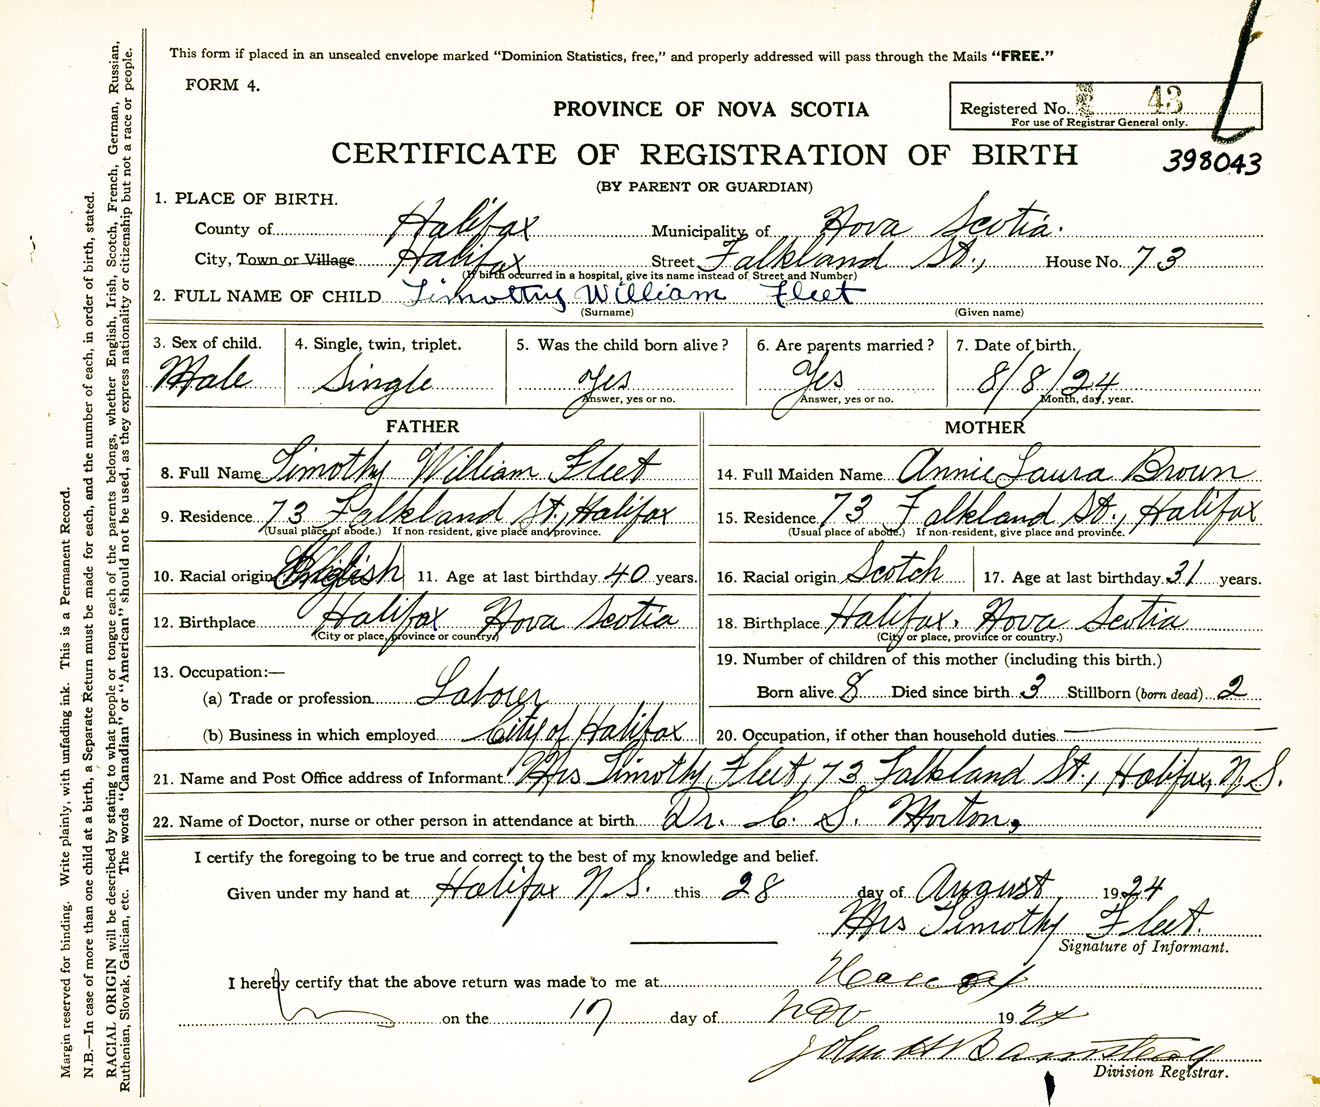 This form if placed in an unsealed envelope marked "Dominion Statistics, free," and properly addressed will pass through the Mails "FREE."
FORM 4.
PROVINCE OF NOVA SCOTIA
Registered No. 43
For use of Registrar General only.
CERTIFICATE OF REGISTRATION OF BIRTH
398043
(BY PARENT OR GUARDIAN)
1. PLACE OF BIRTH.
County of Halifax Municipality of Nova Scotia.
City, Town or Village Halifax Street Falkland St., House No. 73
(If birth occurred in a hospital, give its name instead of Street and Number)
2. FULL NAME OF CHILD Timothy William Fleet
(Surname) (Given name)
3. Sex of child. 4. Single, twin, triplet. 5. Was the child born alive? 6. Are parents married? 7. Date of birth.
Male Single Yes Yes 8/8/24
Answer, yes or no. Answer, yes or no. Month, day, year.
FATHER MOTHER
8. Full Name Timothy William Fleet 14. Full Maiden Name Annie Laura Brown
9. Residence 73 Falkland St., Halifax 15. Residence 73 Falkland St., Halifax
(Usual place of abode.) If non-resident, give place and province. (Usual place of abode.) If non-resident, give place and province.
10. Racial origin English 11. Age at last birthday 40 years. 16. Racial origin Scotch 17. Age at last birthday 31 years.
12. Birthplace Halifax Nova Scotia 18. Birthplace Halifax, Nova Scotia
(City or place, province or country.) (City or place, province or country.)
13. Occupation:— 19. Number of children of this mother (including this birth.)
(a) Trade or profession Laborer Born alive 8 Died since birth 3 Stillborn (born dead) 2
(b) Business in which employed City of Halifax 20. Occupation, if other than household duties
21. Name and Post Office address of Informant Mrs Timothy Fleet, 73 Falkland St., Halifax, N.S.
22. Name of Doctor, nurse or other person in attendance at birth Dr. C. S. Morton,
I certify the foregoing to be true and correct to the best of my knowledge and belief.
Given under my hand at Halifax N.S. this 28 day of August 1924
Mrs Timothy Fleet.
Signature of Informant.
I hereby certify that the above return was made to me at
on the 17 day of Nov 1924
John H
Division Registrar.
Margin reserved for binding. Write plainly, with unfading ink. This is a Permanent Record.
N.B.—In case of more than one child at a birth, a Separate Return must be made for each, and the number of each, in order of birth, stated.
RACIAL ORIGIN will be described by stating to what people or tongue each of the parents belongs, whether English, Irish, Scotch, French, German, Russian,
Ruthenian, Slovak, Galician, etc. The words "Canadian" or "American" should not be used, as they express nationality or citizenship but not a race or people.